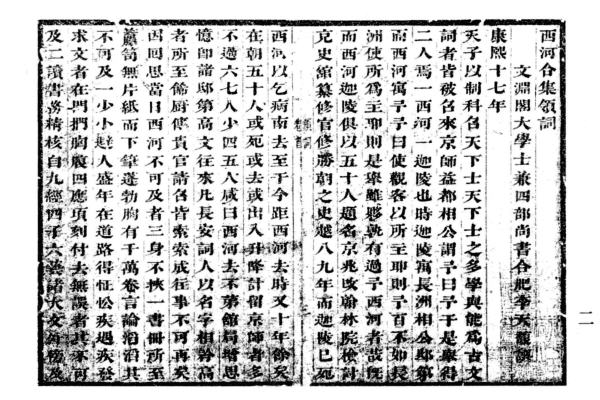 西河合集領詞
文淵閣大學士兼四部尚書合肥李天馥譔
康熙十七年
天子以制科召天下士天下士之多學與能爲古文
詞者皆被召來京師益都相公謂予曰予于是舉得
二人焉一西河一迦陵也時迦陵寓長洲相公邸第
而西河寓予予曰使觀客以所主耶則予百不如長
洲使所爲主耶則是舉雖夥孰有過予西河者哉旣
而西河迦陵俱以五十人題名京兆改翰林院檢討
充史館纂修官修勝朝之史越八九年而迦陵已死
西河以乞病南去至于今距西河去時又十年餘矣
在朝五十人或死或去或出入升降計留京師者多
不過六七人少四五人咸曰西河去不第館局增思
憶即諸邸第高文往來凡長安詞人以名字相幹高
者所至餙厨傳貴官請召皆索索成往事不可再矣
因回思當日西河不可及者三身不挾一書冊所至
籯笥無片紙而下筆蓬勃胸有千萬卷言論滔滔其
不可及一少小避人盛年在道路得怔忪疾遇疾發
求文者在門捫胸腹四應頃刻付去無誤者其不可
及二讀書務精核自九經四子六藝諸大文 及
二